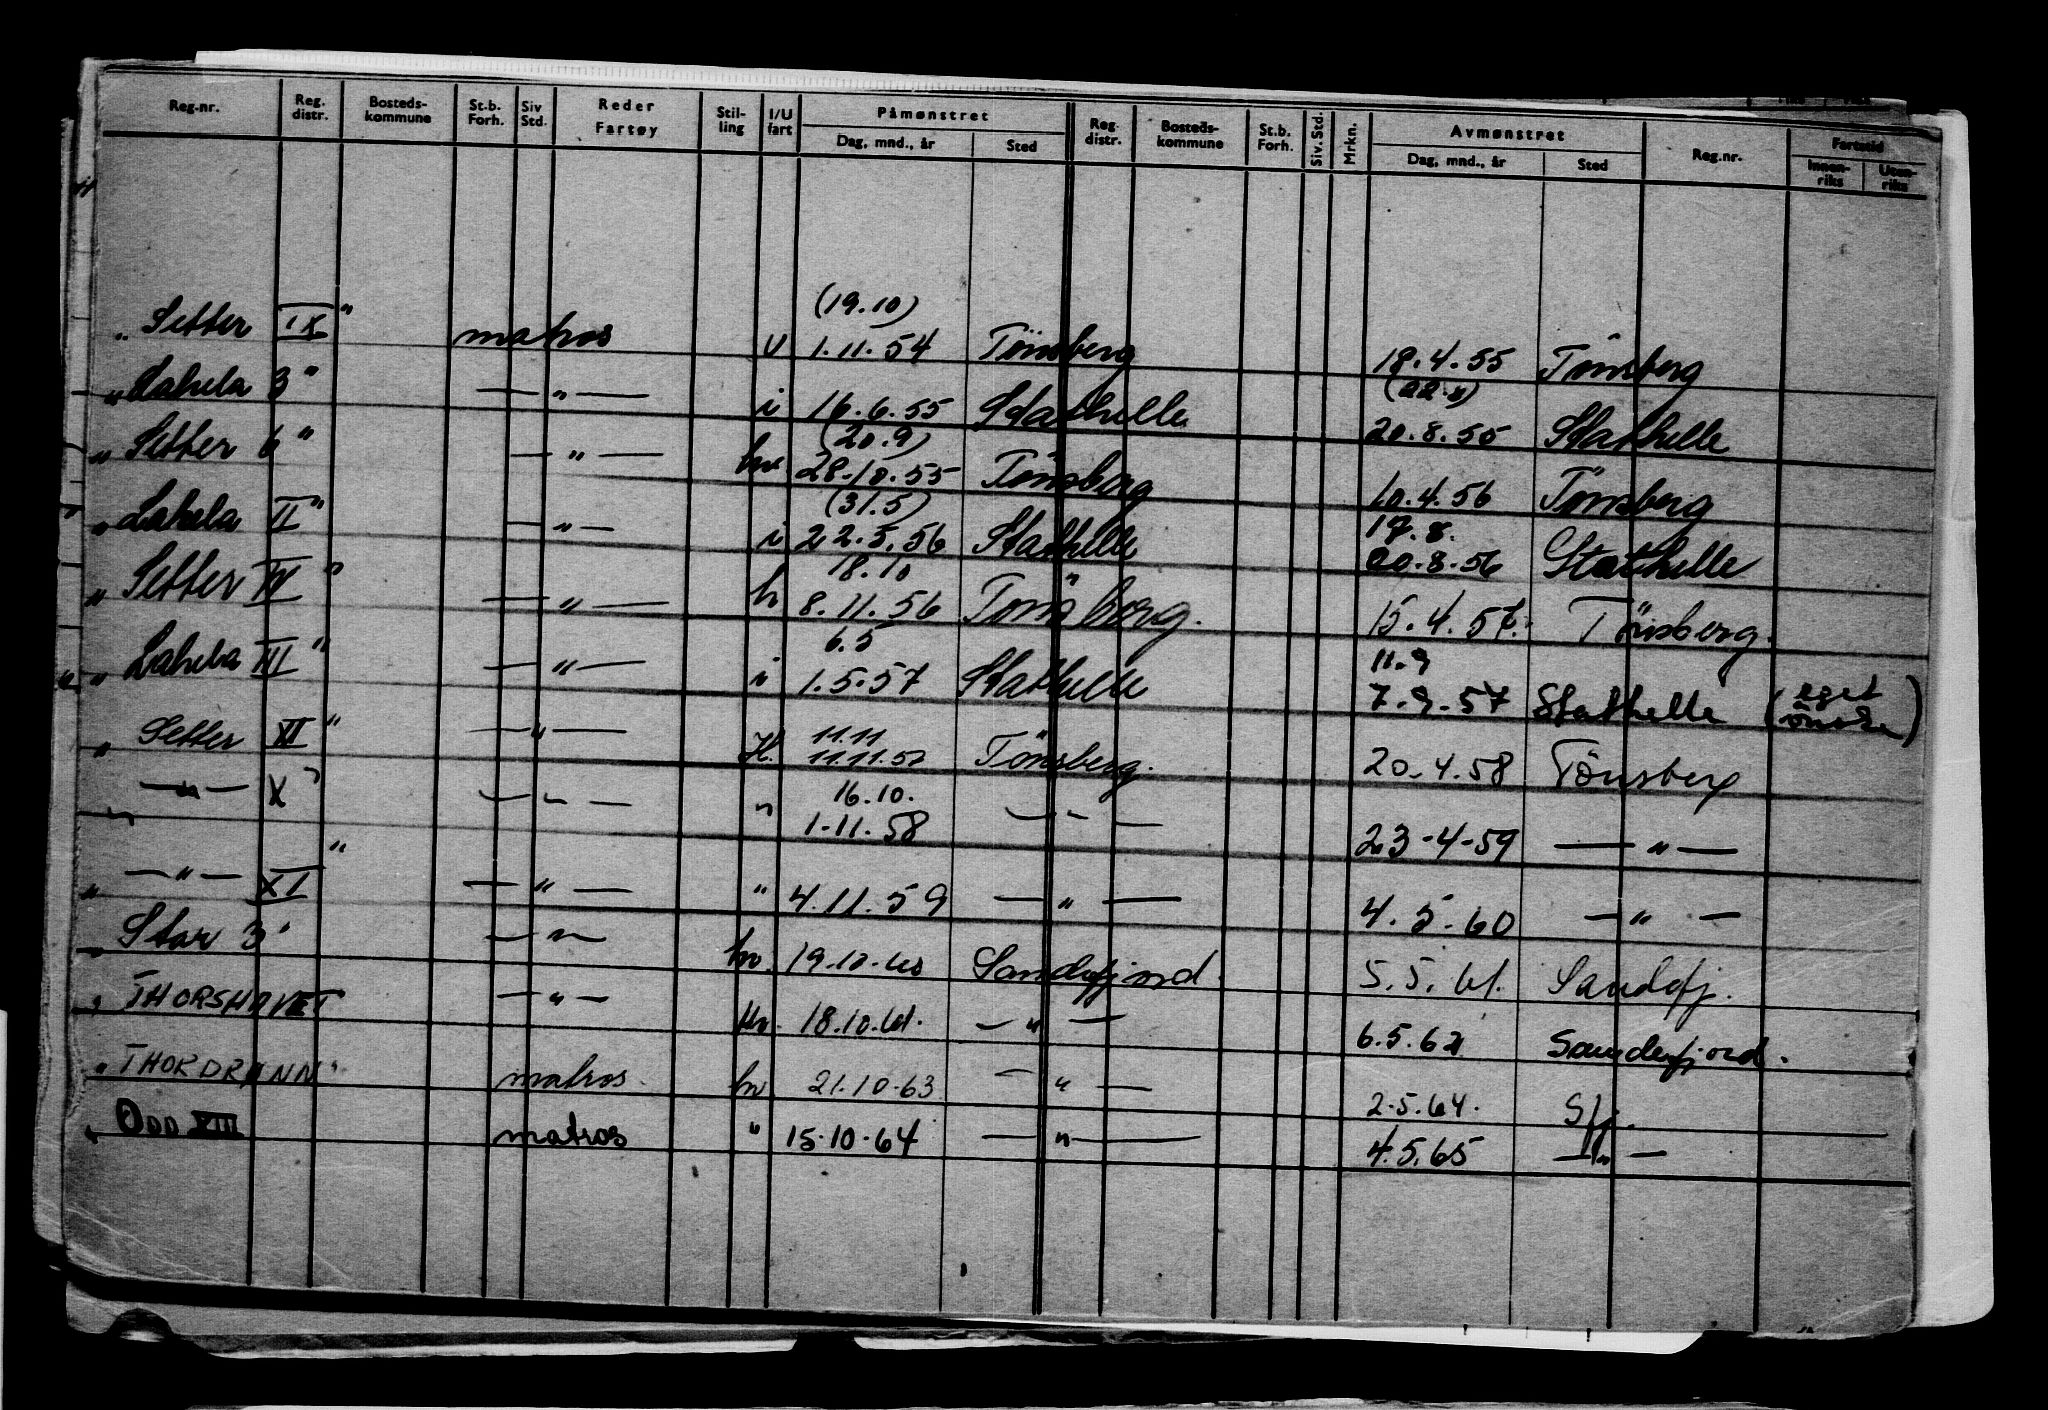 Reg.-nr. Reg. distr. Bosteds- kommune St.b. Forh. Siv Std. Reder Fartøy Stil- ling I/U fart Påmønstret Dag, mnd., år Sted Reg. distr. Bosteds- kommune St.b. Forh. Siv. Std. Mrkn. Avmønstret Dag, mnd., år Sted Reg.nr. Fartstid Innen- riks Uten- riks
(19.10)
„ Setter IX " matros u 1.11.54 Tönsberg 18.4.55 Tönsberg
„ Lahela 3" — „ — i 16.6.55 Stathelle 20.8.55 Stathelle
(20.9)
„ Setter 6" — „ — hv. 28.10.55 Tönsberg 10.4.56 Tönsberg
(31.5) 17.8.
„ Lahela II" — „ — i 22.5.56 Stathelle 20.8.56 Stathelle
18.10
„ Setter IV " — „ — h 8.11.56 Tönsberg. 15.4.57. Tönsberg.
6.5 11.9
„ Lahela III " — „ — i 1.5.57 Stathelle 7.9.57 Stathelle (eget ønske)
11.11
„ Setter XI " — „ — H. 11.11.57 Tönsberg. 20.4.58 Tönsberg
16.10.
„ — „ — X " — „ — " 1-11.58 — „ — 23-4-59 — „ —
„ — „ — XI " — „ — " 4.11.59 — „ — 4.5.60 — „ —
„ Star 3" — „ — hv. 19.10.60 Sandefjord. 5.5.61. Sandefj.
„ THORSHAVET — „ — Hv. 18.10.61. — „ — 6.5.62 Sandefjord.
„ THORDRANN" matros. hv 21.10.63 — „ — 2.5.64. Sfj.
„ ODD XIII matros " 15.10.64 — „ — 4.5.65 — „ —